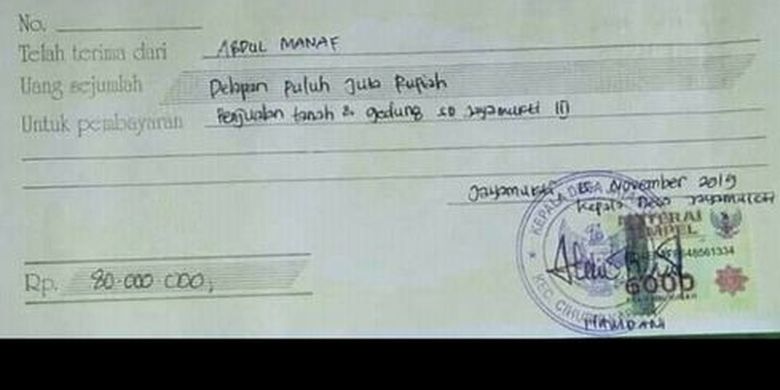 No.
Telah terima dari ABDUL MANAF
Uang sejumlah Delapan Puluh Juta Rupiah
Untuk pembayaran Penjualan tanah & gedung SD Jayamukti III
Jayamukti, November 2019
Kepala Desa Jayamukti
KEPALA DESA
METERAI
TEMPEL
6000
Rp. 80.000.000,
KEC. CIHU
HAMDANI